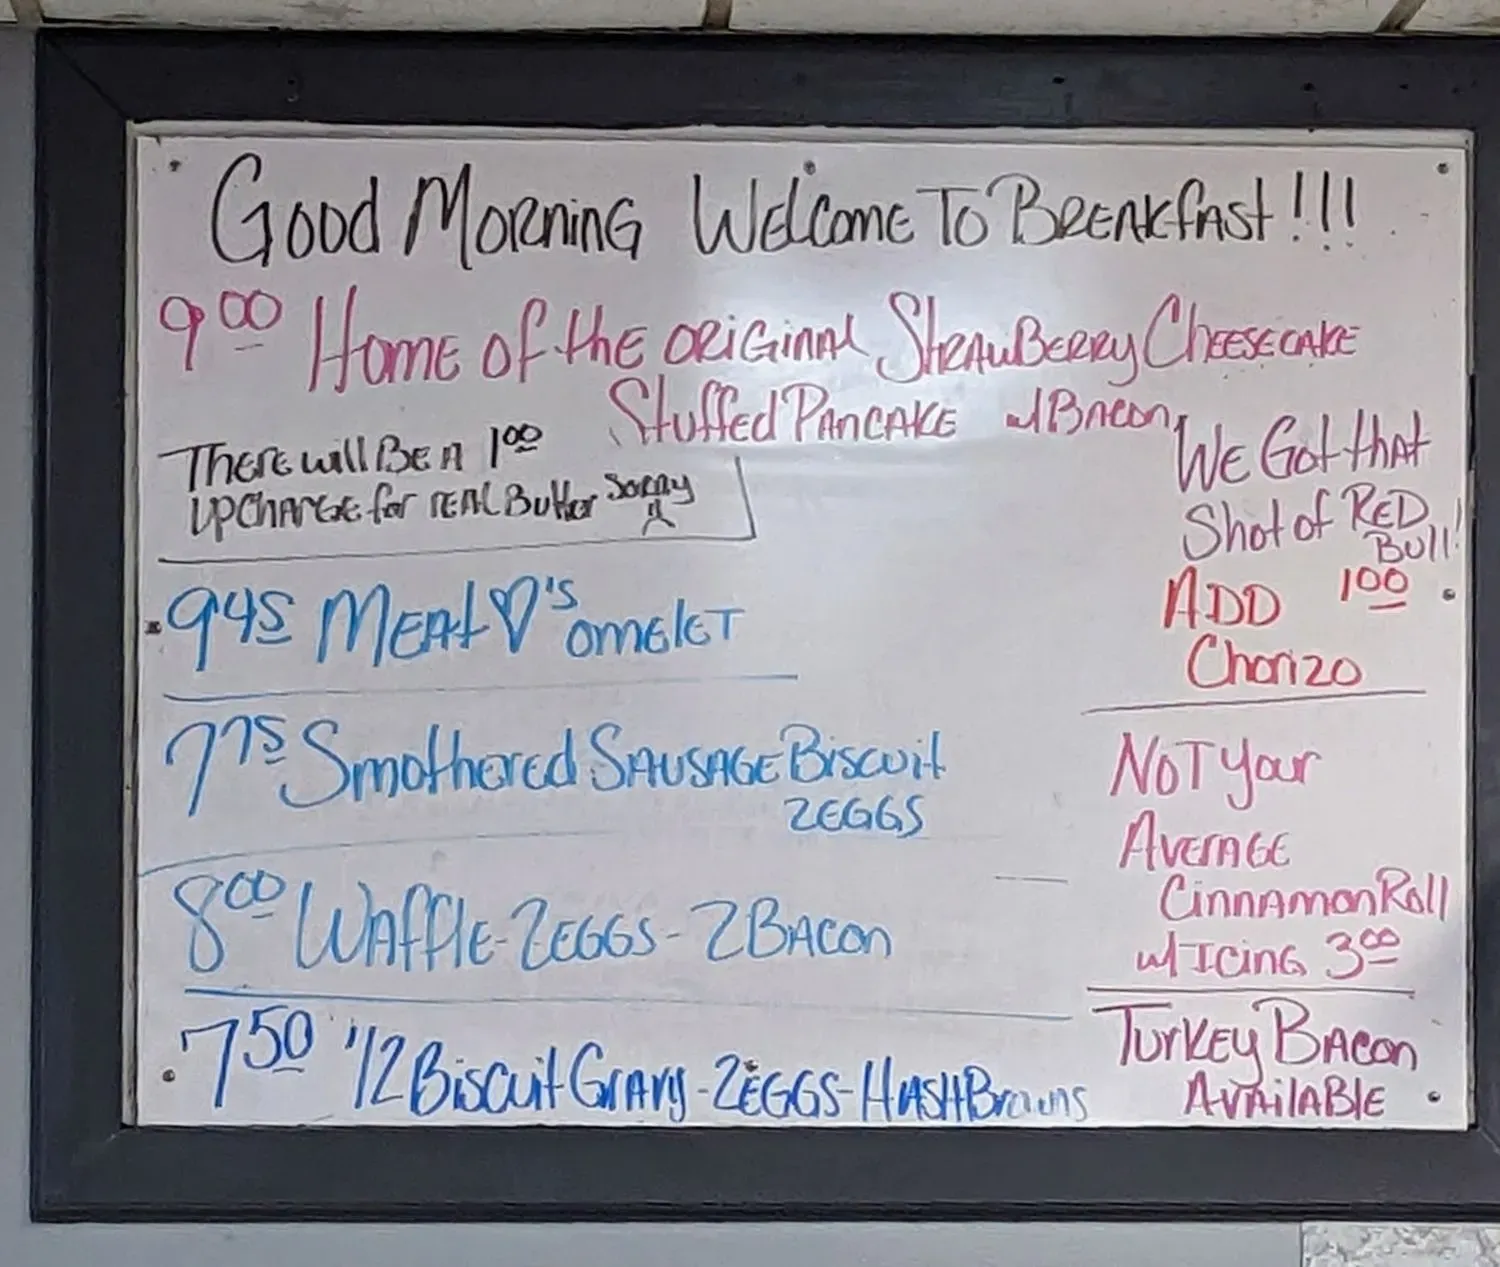 Good Morning Welcome To Breakfast!!!
9.00 Home of the Original Strawberry Cheesecake
Stuffed Pancake w/Bacon
There will Be A 1.00
upcharge for real Butter Sorry
9.45 Meat ♡'s omelet
7.75 Smothered Sausage Biscuit
2 EGGS
8.00 Waffle - 2 EGGS - 2 Bacon
7.50 1/2 Biscuit Gravy - 2 EGGS - HashBrowns
We Got that
Shot of RED
Bull!
ADD 1.00
Chorizo
Not Your
Average
Cinnamon Roll
w/ Icing 3.00
Turkey Bacon
Available